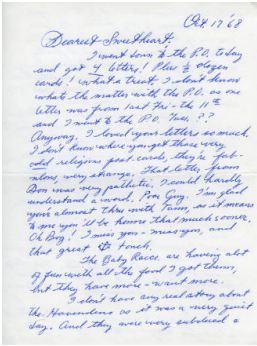 Oct 17 '68
Dearest Sweetheart,
I went down to the P.O. today
and got 4 letters! Plus ½ dozen
cards! What a treat. I don't know
what's the matter with the P.O. as one
letter was from last Fri - the 11th
and I went to the P.O. Tues. ??
Anyway, I loved your letters so much.
I don't know where you got those very
odd religious post cards, they're fab-
ulous, very strange. That letter from
Don was very pathetic. I could hardly
understand a word. Poor Guy. I'm glad
you're almost thru with Tony, as it means
to me you'll be home that much sooner.
Oh Boy, I miss you - miss you, and
that great touch.
The Baby Races are having a lot
of fun with all the food I got them,
but they have more - want more.
I don't have any real story about
the as it was a very quiet
day. And they were very subdued &